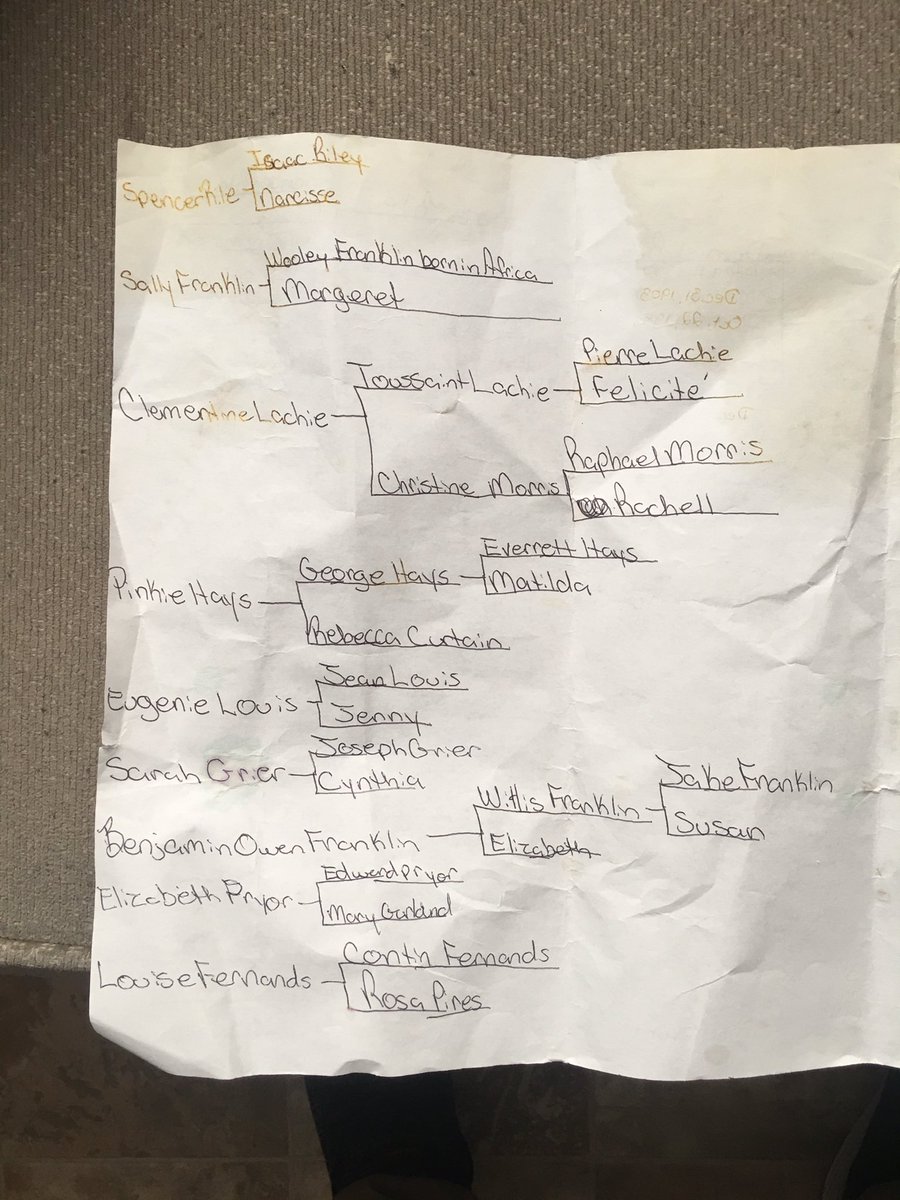 Isaac Riley
Spencer Rile
Narcisse
Wooley Franklin born in Africa
Sally Franklin
Margeret
Pierre Lachie
Toussaint Lachie
Felicité
Clementine Lachie
Raphael Morris
Christine Morris
Rachell
Everrett Hays
George Hays
Matilda
Pinkie Hays
Rebecca Curtain
Jean Louis
Eugenie Louis
Jenny
Joseph Grier
Sarah Grier
Cynthia
Jake Franklin
Willis Franklin
Susan
Benjamin Owen Franklin
Elizabeth
Edward Pryor
Elizabeth Pryor
Mary Garland
Contin Fernands
Louise Fernands
Rosa Pires
Dec. 31, 1903
Oct. 22,